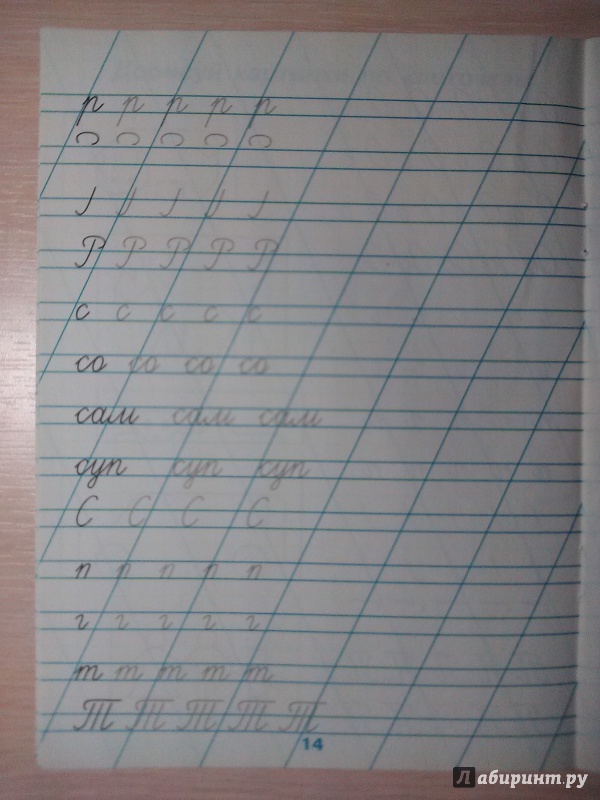 р р р р р
Р Р Р Р Р
с с с с с
со со со со
сам сам сам
суп суп суп
С С С С
п п п п п
г г г г г
т т т т т
Т Т Т Т Т
14
Лабиринт.ру